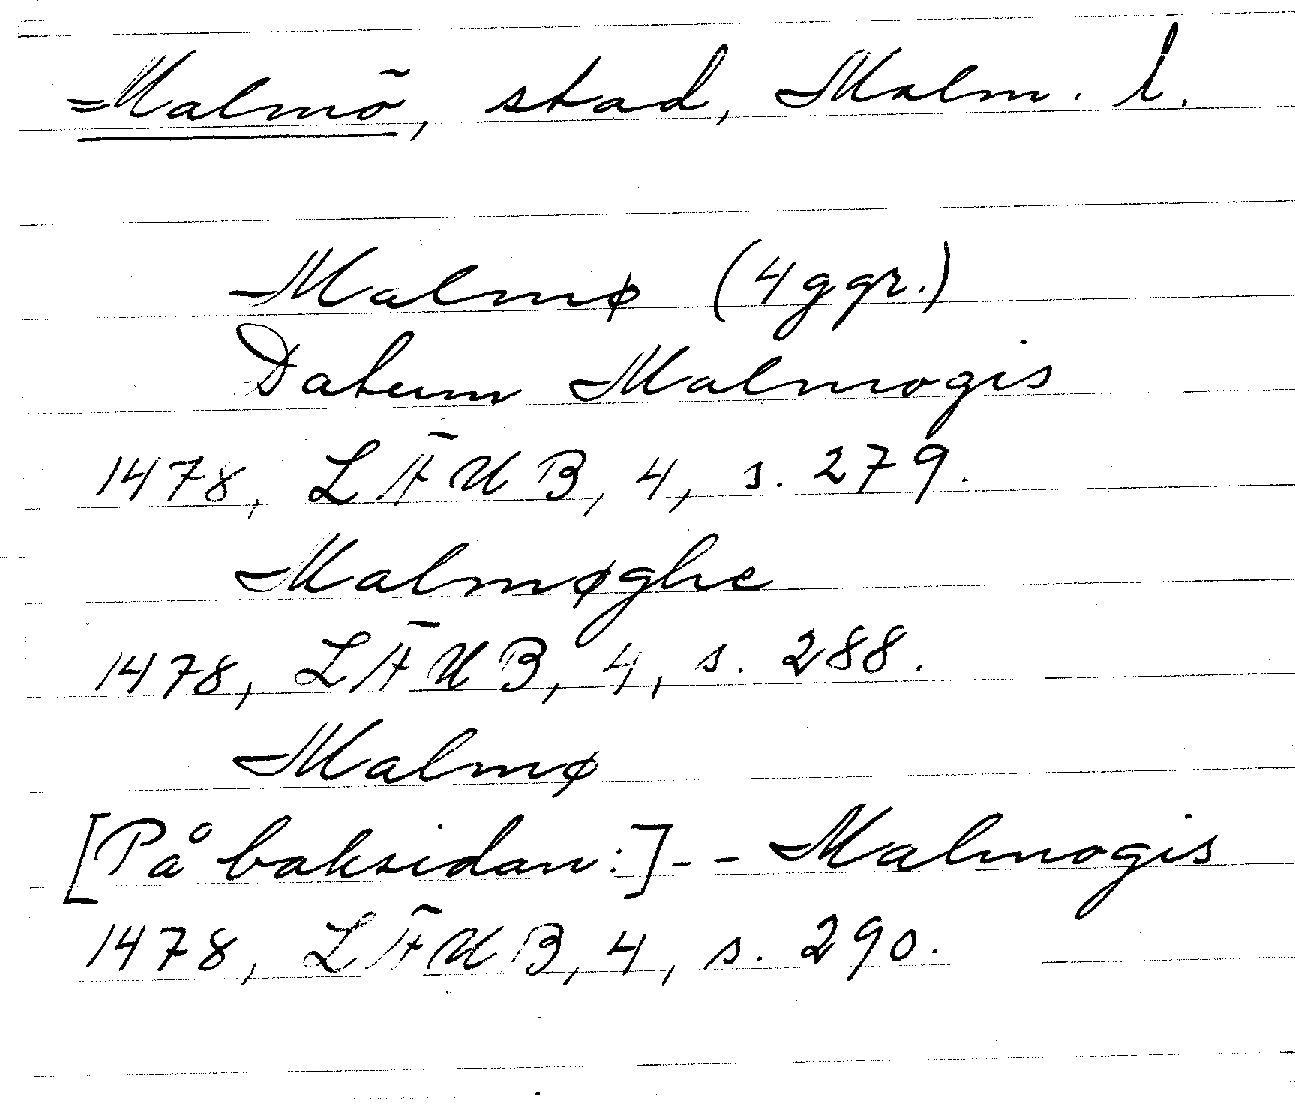 Malmö, stad, Malm. l.
Malmø (4 ggr.)
Datum Malmogis
1478, LÄUB, 4, s. 279.
Malmøghe
1478, LÄUB, 4, s. 288.
Malmø
[På baksidan:] - - Malmogis
1478, LÄUB, 4, s. 290.